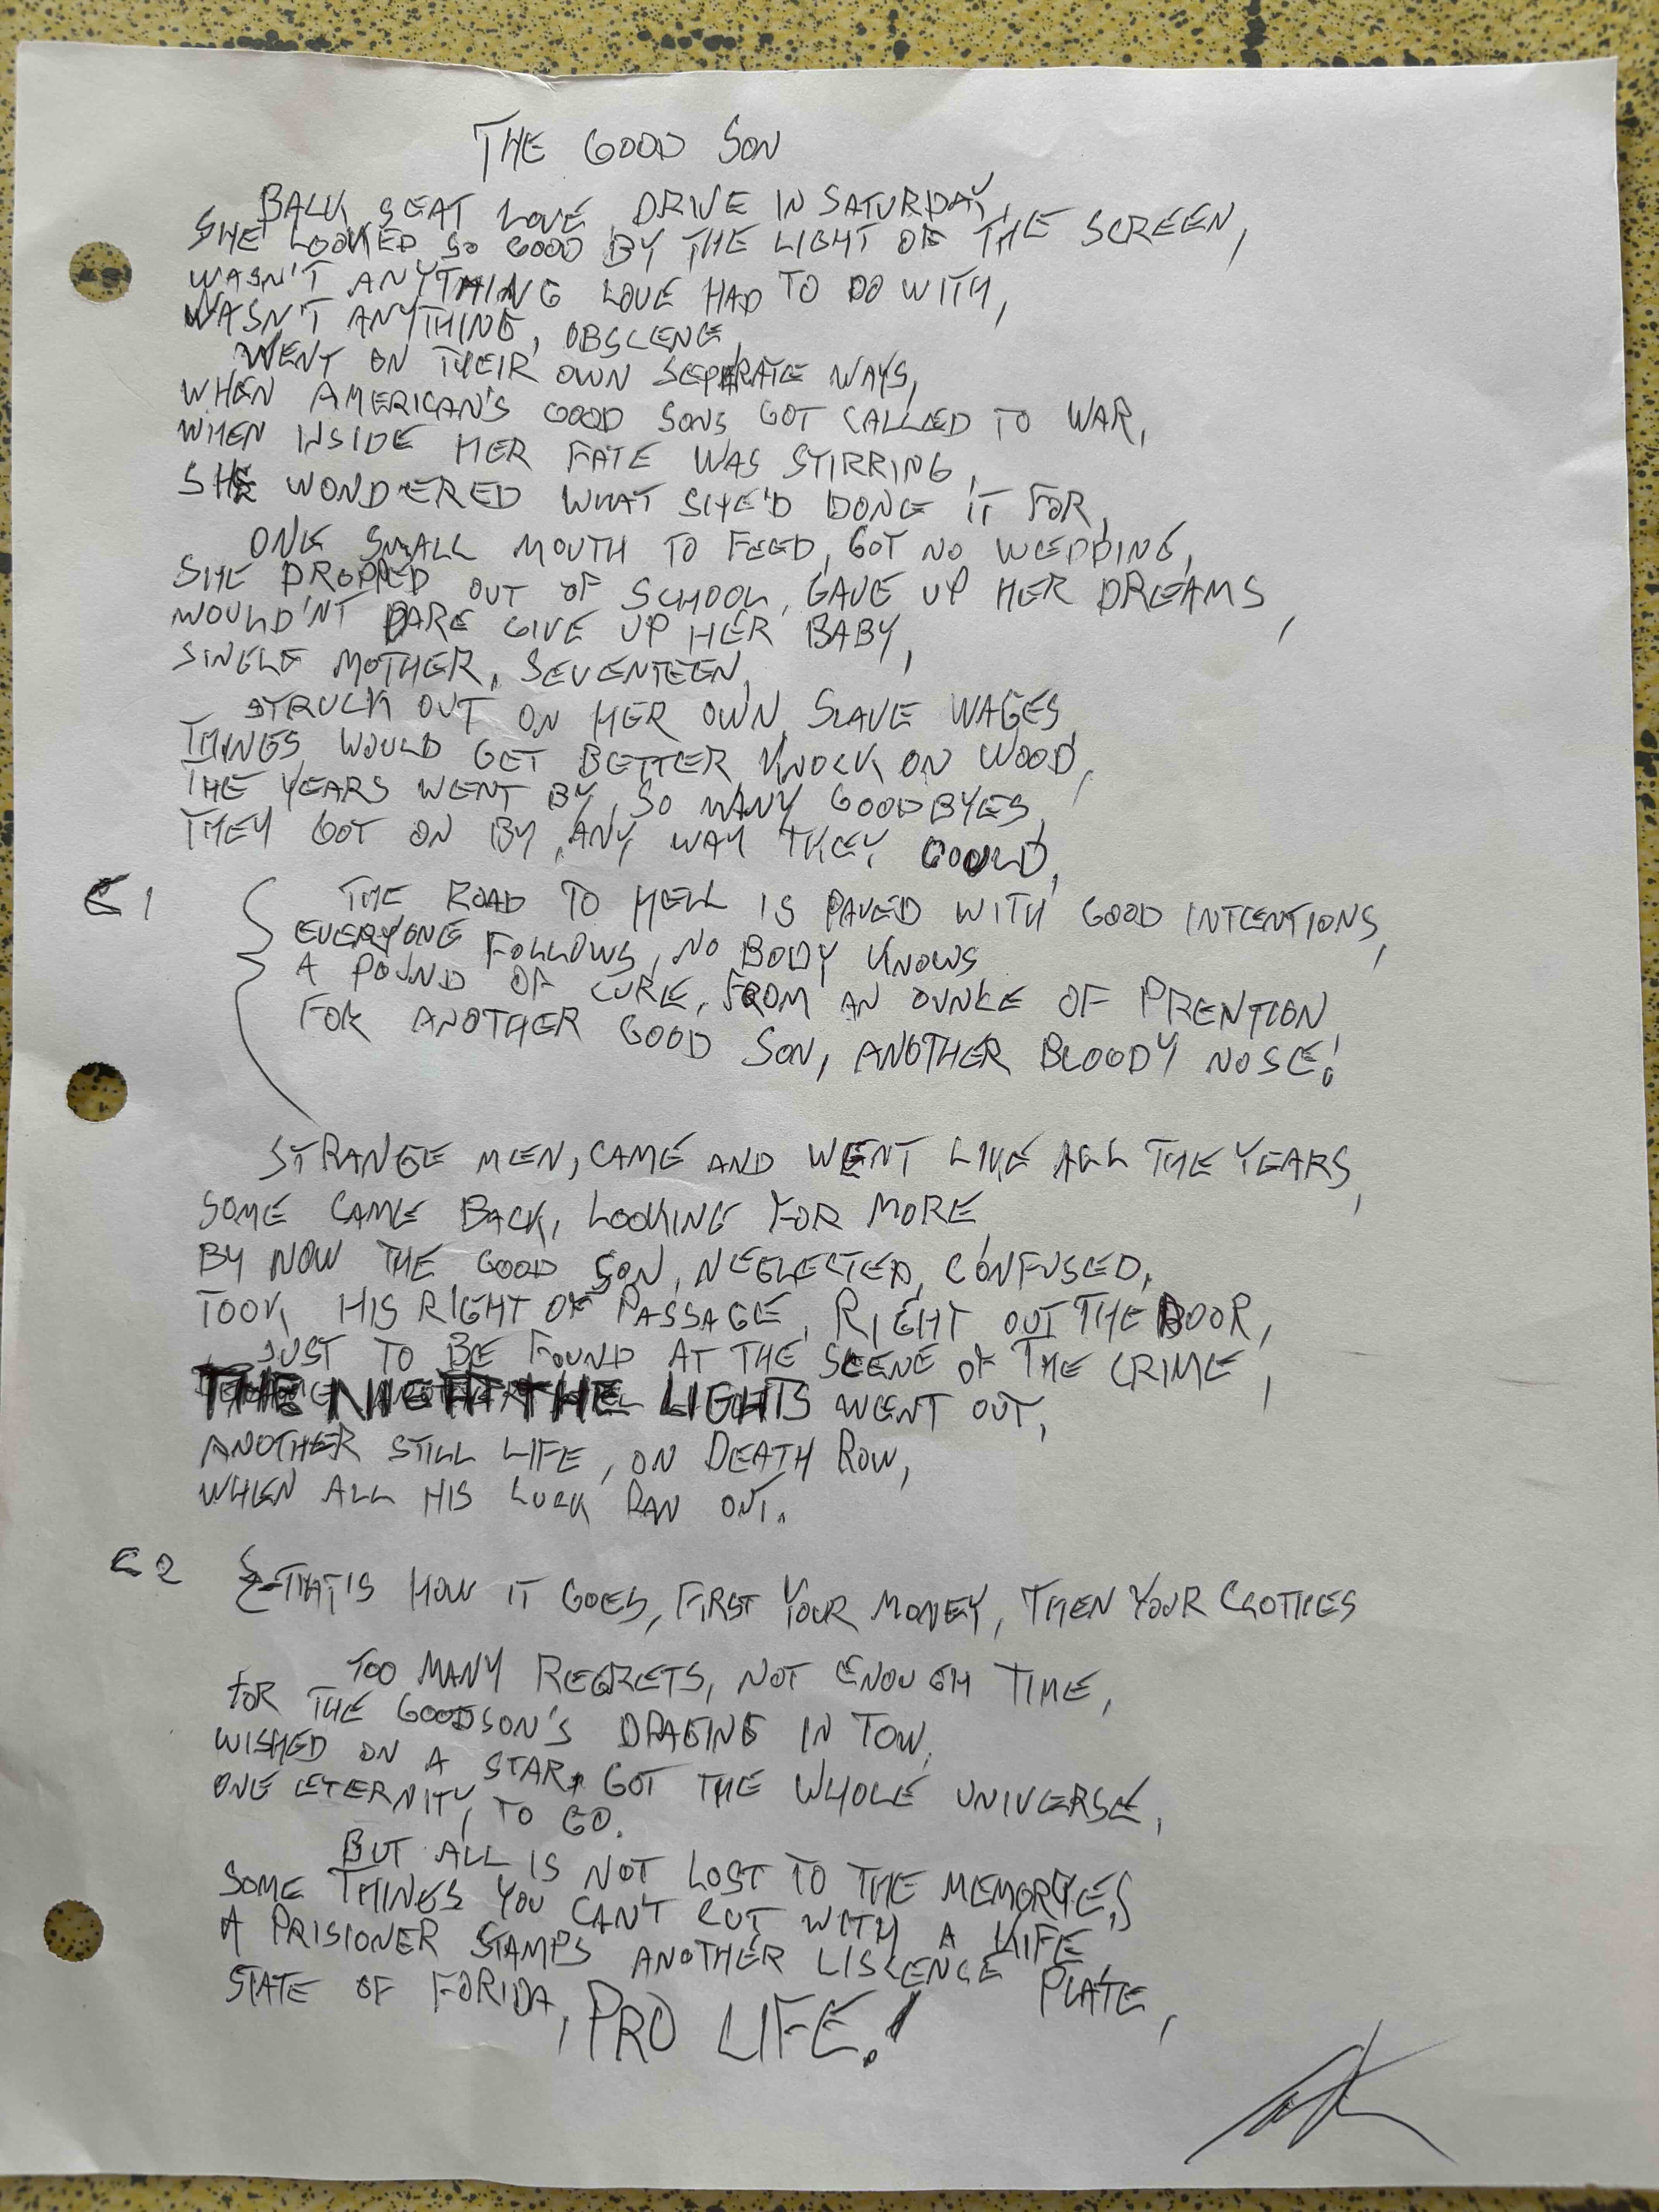 THE GOOD SON
BACK SEAT LOVE, DRIVE IN SATURDAY,
SHE LOOKED SO GOOD BY THE LIGHT OF THE SCREEN,
WASN'T ANYTHING LOVE HAD TO DO WITH,
WASN'T ANYTHING, OBSCENE,
WENT ON THEIR OWN SEPARATE WAYS,
WHEN AMERICAN'S GOOD SONS GOT CALLED TO WAR,
WHEN INSIDE HER FATE WAS STIRRING,
SHE WONDERED WHAT SHE'D DONE IT FOR,
ONE SMALL MOUTH TO FEED, GOT NO WEDDING,
SHE DROPPED OUT OF SCHOOL, GAVE UP HER DREAMS,
WOULD'NT DARE GIVE UP HER BABY,
SINGLE MOTHER, SEVENTEEN,
STRUCK OUT ON HER OWN, SLAVE WAGES,
THINGS WOULD GET BETTER, KNOCK ON WOOD,
THE YEARS WENT BY, SO MANY GOODBYES,
THEY GOT ON BY, ANY WAY THEY COULD,
C 1
THE ROAD TO HELL IS PAVED WITH GOOD INTENTIONS,
EVERYONE FOLLOWS, NO BODY KNOWS
A POUND OF CURE, FROM AN OUNCE OF PRENTION
FOR ANOTHER GOOD SON, ANOTHER BLOODY NOSE!
STRANGE MEN, CAME AND WENT LIKE ALL THE YEARS,
SOME CAME BACK, LOOKING FOR MORE,
BY NOW THE GOOD SON, NEGLECTED, CONFUSED,
TOOK HIS RIGHT OF PASSAGE, RIGHT OUT THE DOOR,
JUST TO BE FOUND AT THE SCENE OF THE CRIME,
THE NIGHT THE LIGHTS WENT OUT,
ANOTHER STILL LIFE, ON DEATH ROW,
WHEN ALL HIS LUCK RAN OUT.
C 2
THAT'S HOW IT GOES, FIRST YOUR MONEY, THEN YOUR CLOTHES
TOO MANY REGRETS, NOT ENOUGH TIME,
FOR THE GOODSON'S DRAGING IN TOW,
WISHED ON A STAR, GOT THE WHOLE UNIVERSE,
ONE ETERNITY, TO GO.
BUT ALL IS NOT LOST TO THE MEMORYES
SOME THINGS YOU CAN'T CUT WITH A KIFE,
A PRISIONER STAMPS ANOTHER LISCENCE PLATE,
STATE OF FORIDA, PRO LIFE!